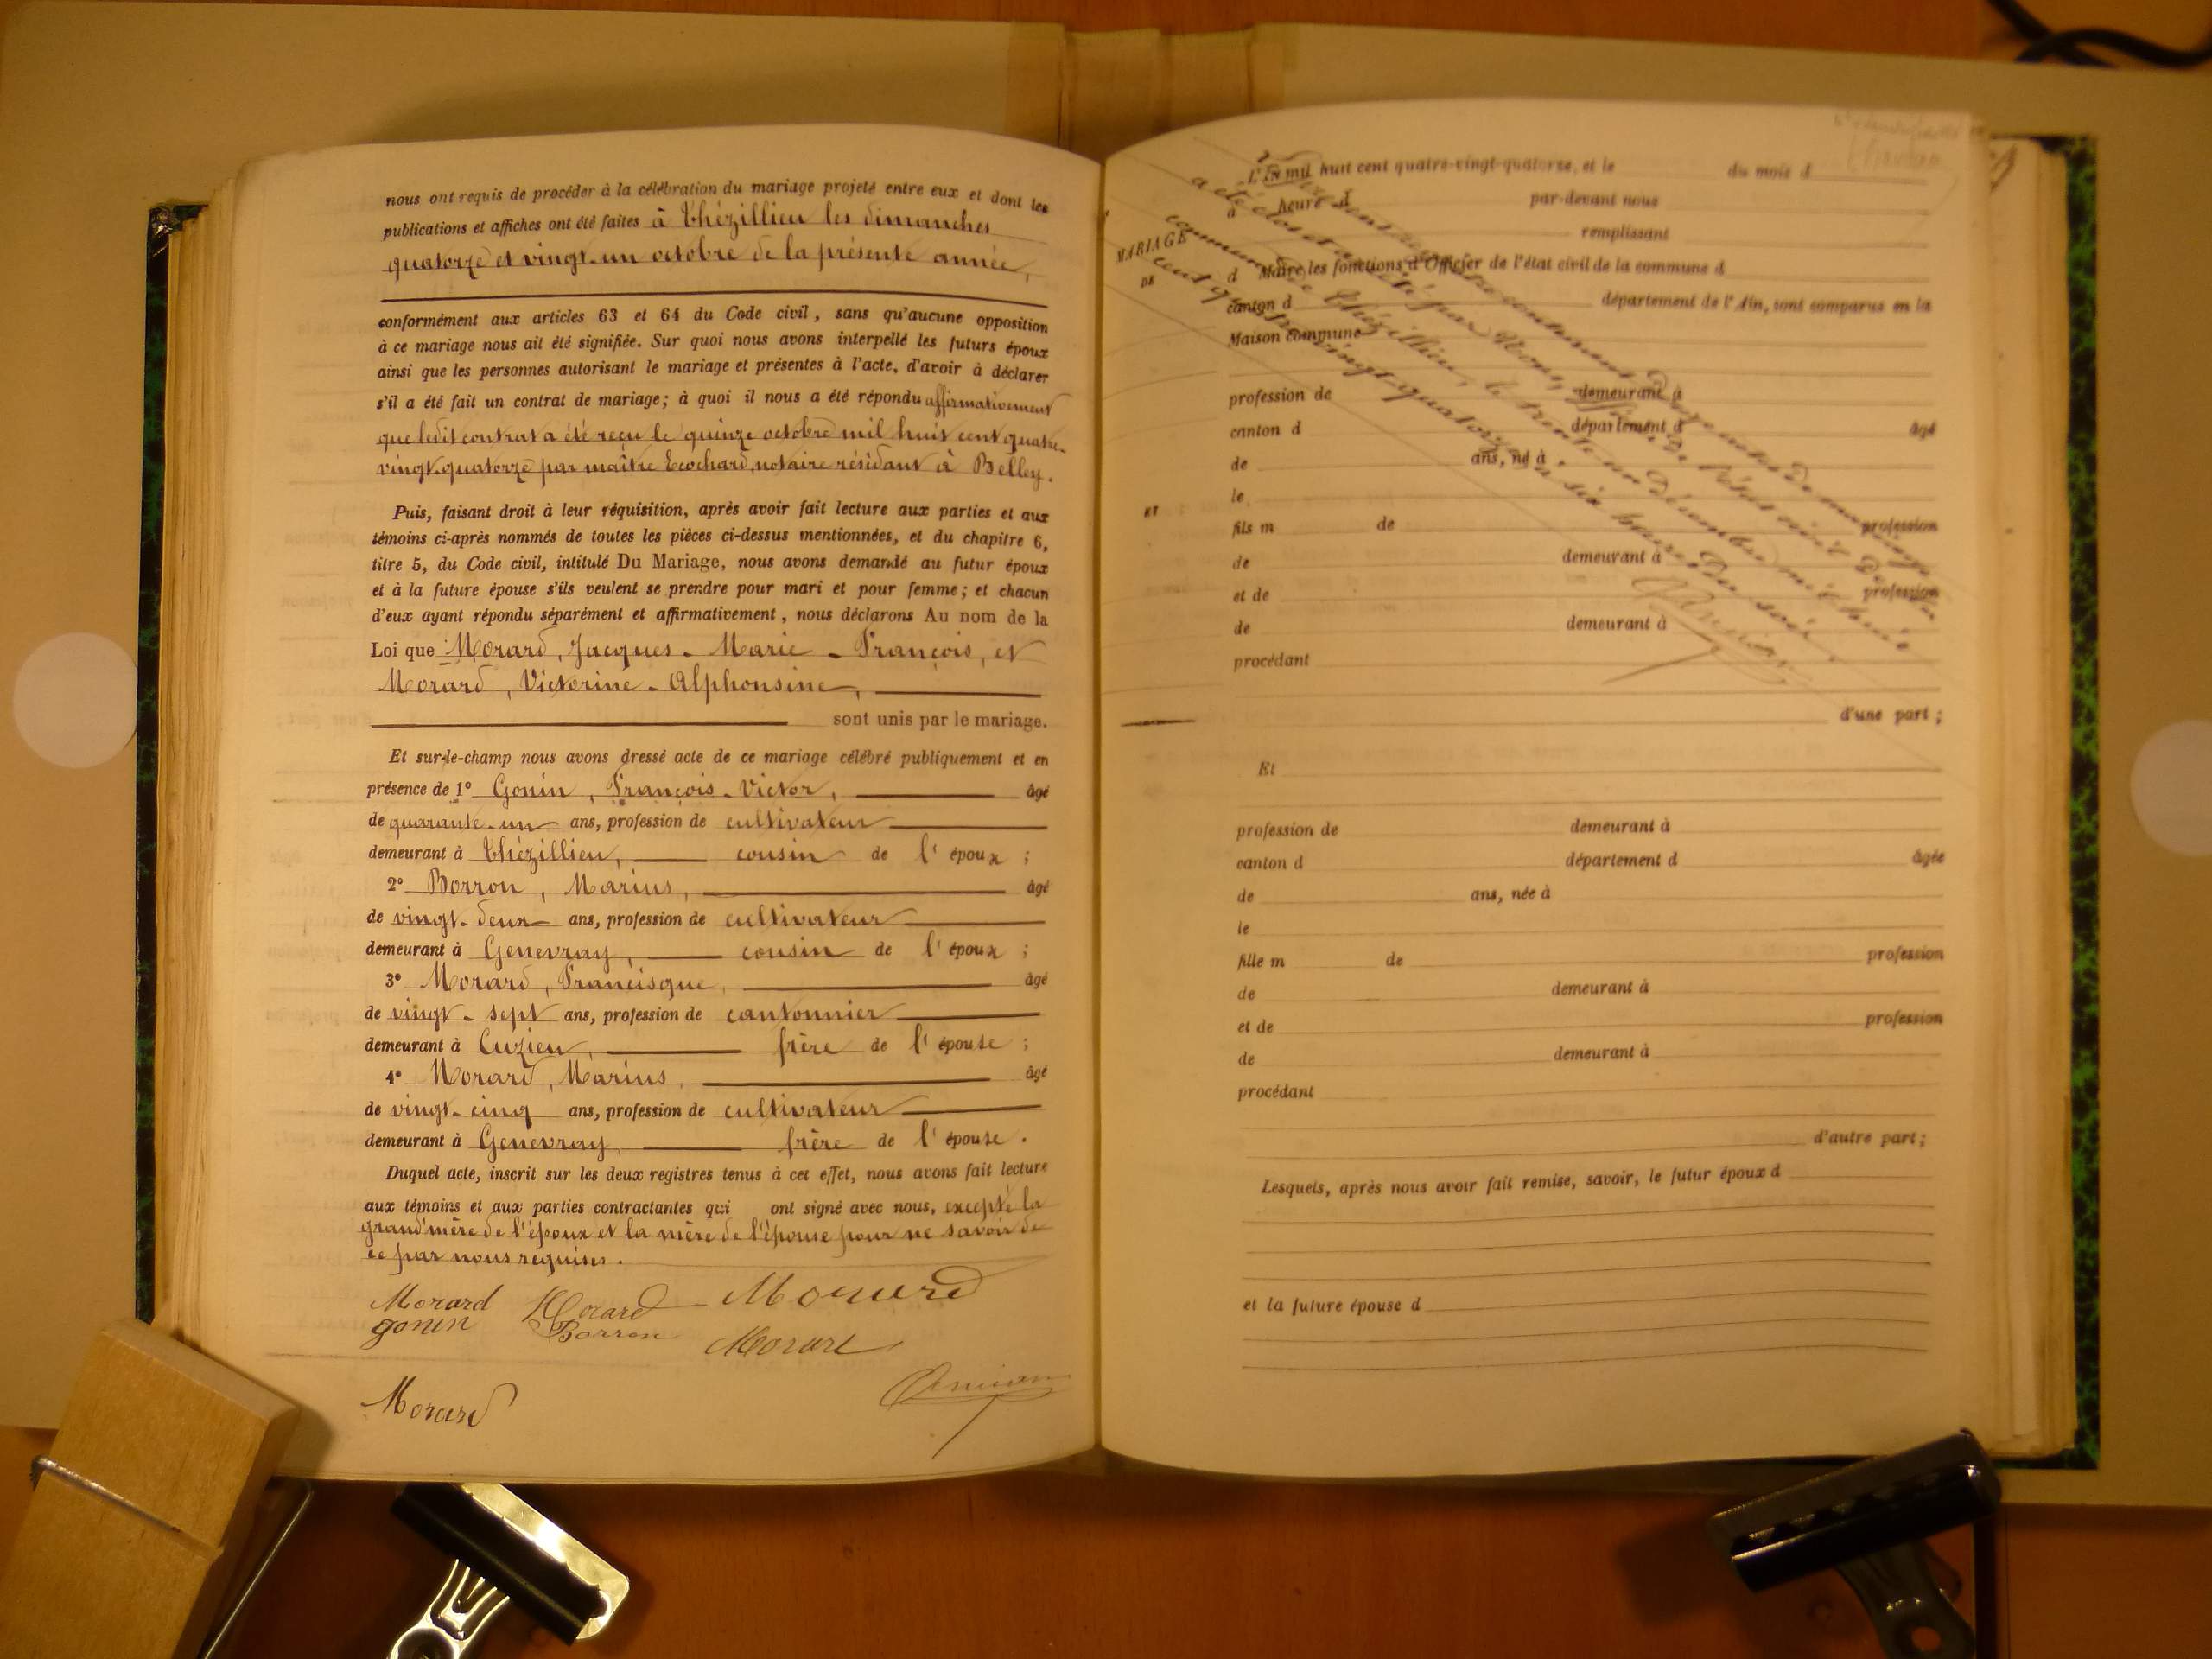 nous ont requis de procéder à la célébration du mariage projeté entre eux et dont les
publications et affiches ont été faites à Thézillieu les dimanches
quatorze et vingt-un octobre de la présente année,
conformément aux articles 63 et 64 du Code civil, sans qu'aucune opposition
à ce mariage nous ait été signifiée. Sur quoi nous avons interpellé les futurs époux
ainsi que les personnes autorisant le mariage et présentes à l'acte, d'avoir à déclarer
s'il a été fait un contrat de mariage; à quoi il nous a été répondu affirmativement
que ledit contrat a été reçu le quinze octobre mil huit cent quatre-
vingt-quatorze par maître Ecochard, notaire résidant à Belley.
Puis, faisant droit à leur réquisition, après avoir fait lecture aux parties et aux
témoins ci-après nommés de toutes les pièces ci-dessus mentionnées, et du chapitre 6,
titre 5, du Code civil, intitulé Du Mariage, nous avons demandé au futur époux
et à la future épouse s'ils veulent se prendre pour mari et pour femme; et chacun
d'eux ayant répondu séparément et affirmativement, nous déclarons Au nom de la
Loi que Morard, Jacques-Marie-François, et
Morard, Victorine-Alphonsine,
sont unis par le mariage.
Et sur-le-champ nous avons dressé acte de ce mariage célébré publiquement et en
présence de 1° Gonin, François-Victor, âgé
de quarante-un ans, profession de cultivateur
demeurant à Thézillieu, cousin de l'époux;
2° Borron, Marius, âgé
de vingt-deux ans, profession de cultivateur
demeurant à Genevray, cousin de l'époux;
3° Morard, Francisque, âgé
de vingt-sept ans, profession de cantonnier
demeurant à Cuzieu, frère de l'épouse;
4° Morard, Marius, âgé
de vingt-cinq ans, profession de cultivateur
demeurant à Genevray, frère de l'épouse.
Duquel acte, inscrit sur les deux registres tenus à cet effet, nous avons fait lecture
aux témoins et aux parties contractantes qui ont signé avec nous, excepté la
grand'mère de l'époux et la mère de l'épouse pour ne savoir de
ce par nous requises.
Morard Morard Morard
gonin Borron Morard
Morard
L'An mil huit cent quatre-vingt-quatorze, et le du mois d
à heure d par-devant nous
remplissant
MARIAGE
DE
d Maire les fonctions d'Officier de l'état civil de la commune d
canton d département de l'Ain, sont comparus en la
Maison commune
profession de demeurant à
canton d département d âgé
de ans, né à
le
ET
fils m de profession
de demeurant à
et de profession
de demeurant à
procédant
d'une part;
Et
profession de demeurant à
canton d département d âgée
de ans, née à
le
fille m de profession
de demeurant à
et de profession
de demeurant à
procédant
d'autre part;
Lesquels, après nous avoir fait remise, savoir, le futur époux d
et la future épouse d
a été clos et arrêté par Nous, officier de l'état civil de la
commune de Thézillieu, le trente-un décembre mil huit
cent quatre-vingt-quatorze à six heures du soir.